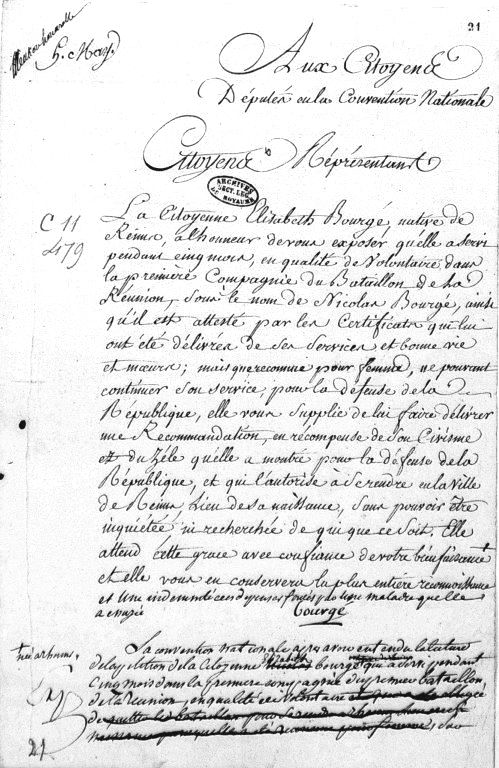 21
5. May
Aux Citoyens
Députés en la Convention Nationale
Citoyens Réprésentants
ARCHIVES
SECT. LEG.
DU ROYAUME
C 11
479
La Citoyenne Elisabeth Bourgé, native de
Reims, a l'honneur de vous exposer qu'elle a servi
pendant cinq mois, en qualité de Volontaire dans
la première Compagnie du Bataillon de la
Réunion, sous le nom de Nicolas Bourgé, ainsi
qu'il est attesté par les Certificats qui lui
ont été délivrés de ses Services et bonne vie
et mœurs; mais que reconnue pour femme, ne pouvant
continuer son service, pour la défense de la
République, elle vous supplie de lui faire délivrer
une Recommandation, en récompense de son Civisme
et du Zéle qu'elle a montré pour la défense de la
République, et qui l'autorise à se rendre en la Ville
de Reims, lieu de sa naissance, sans pouvoir être
inquiétée ni recherchée de qui que ce soit. Elle
attend cette grace avec confiance de votre bienfaisance
et elle vous en conservera la plus entiere reconnoissance
et une indemnité des depenses malade quelle
a
bourgé
La convention nationale apres avoir entendu la lecture
de la petition de la Citoyenne bourgé qui a servi pendant
Cinq mois dans la premiere compagnie du premier bataillon
de la reunion, en qualité de volontaire
21